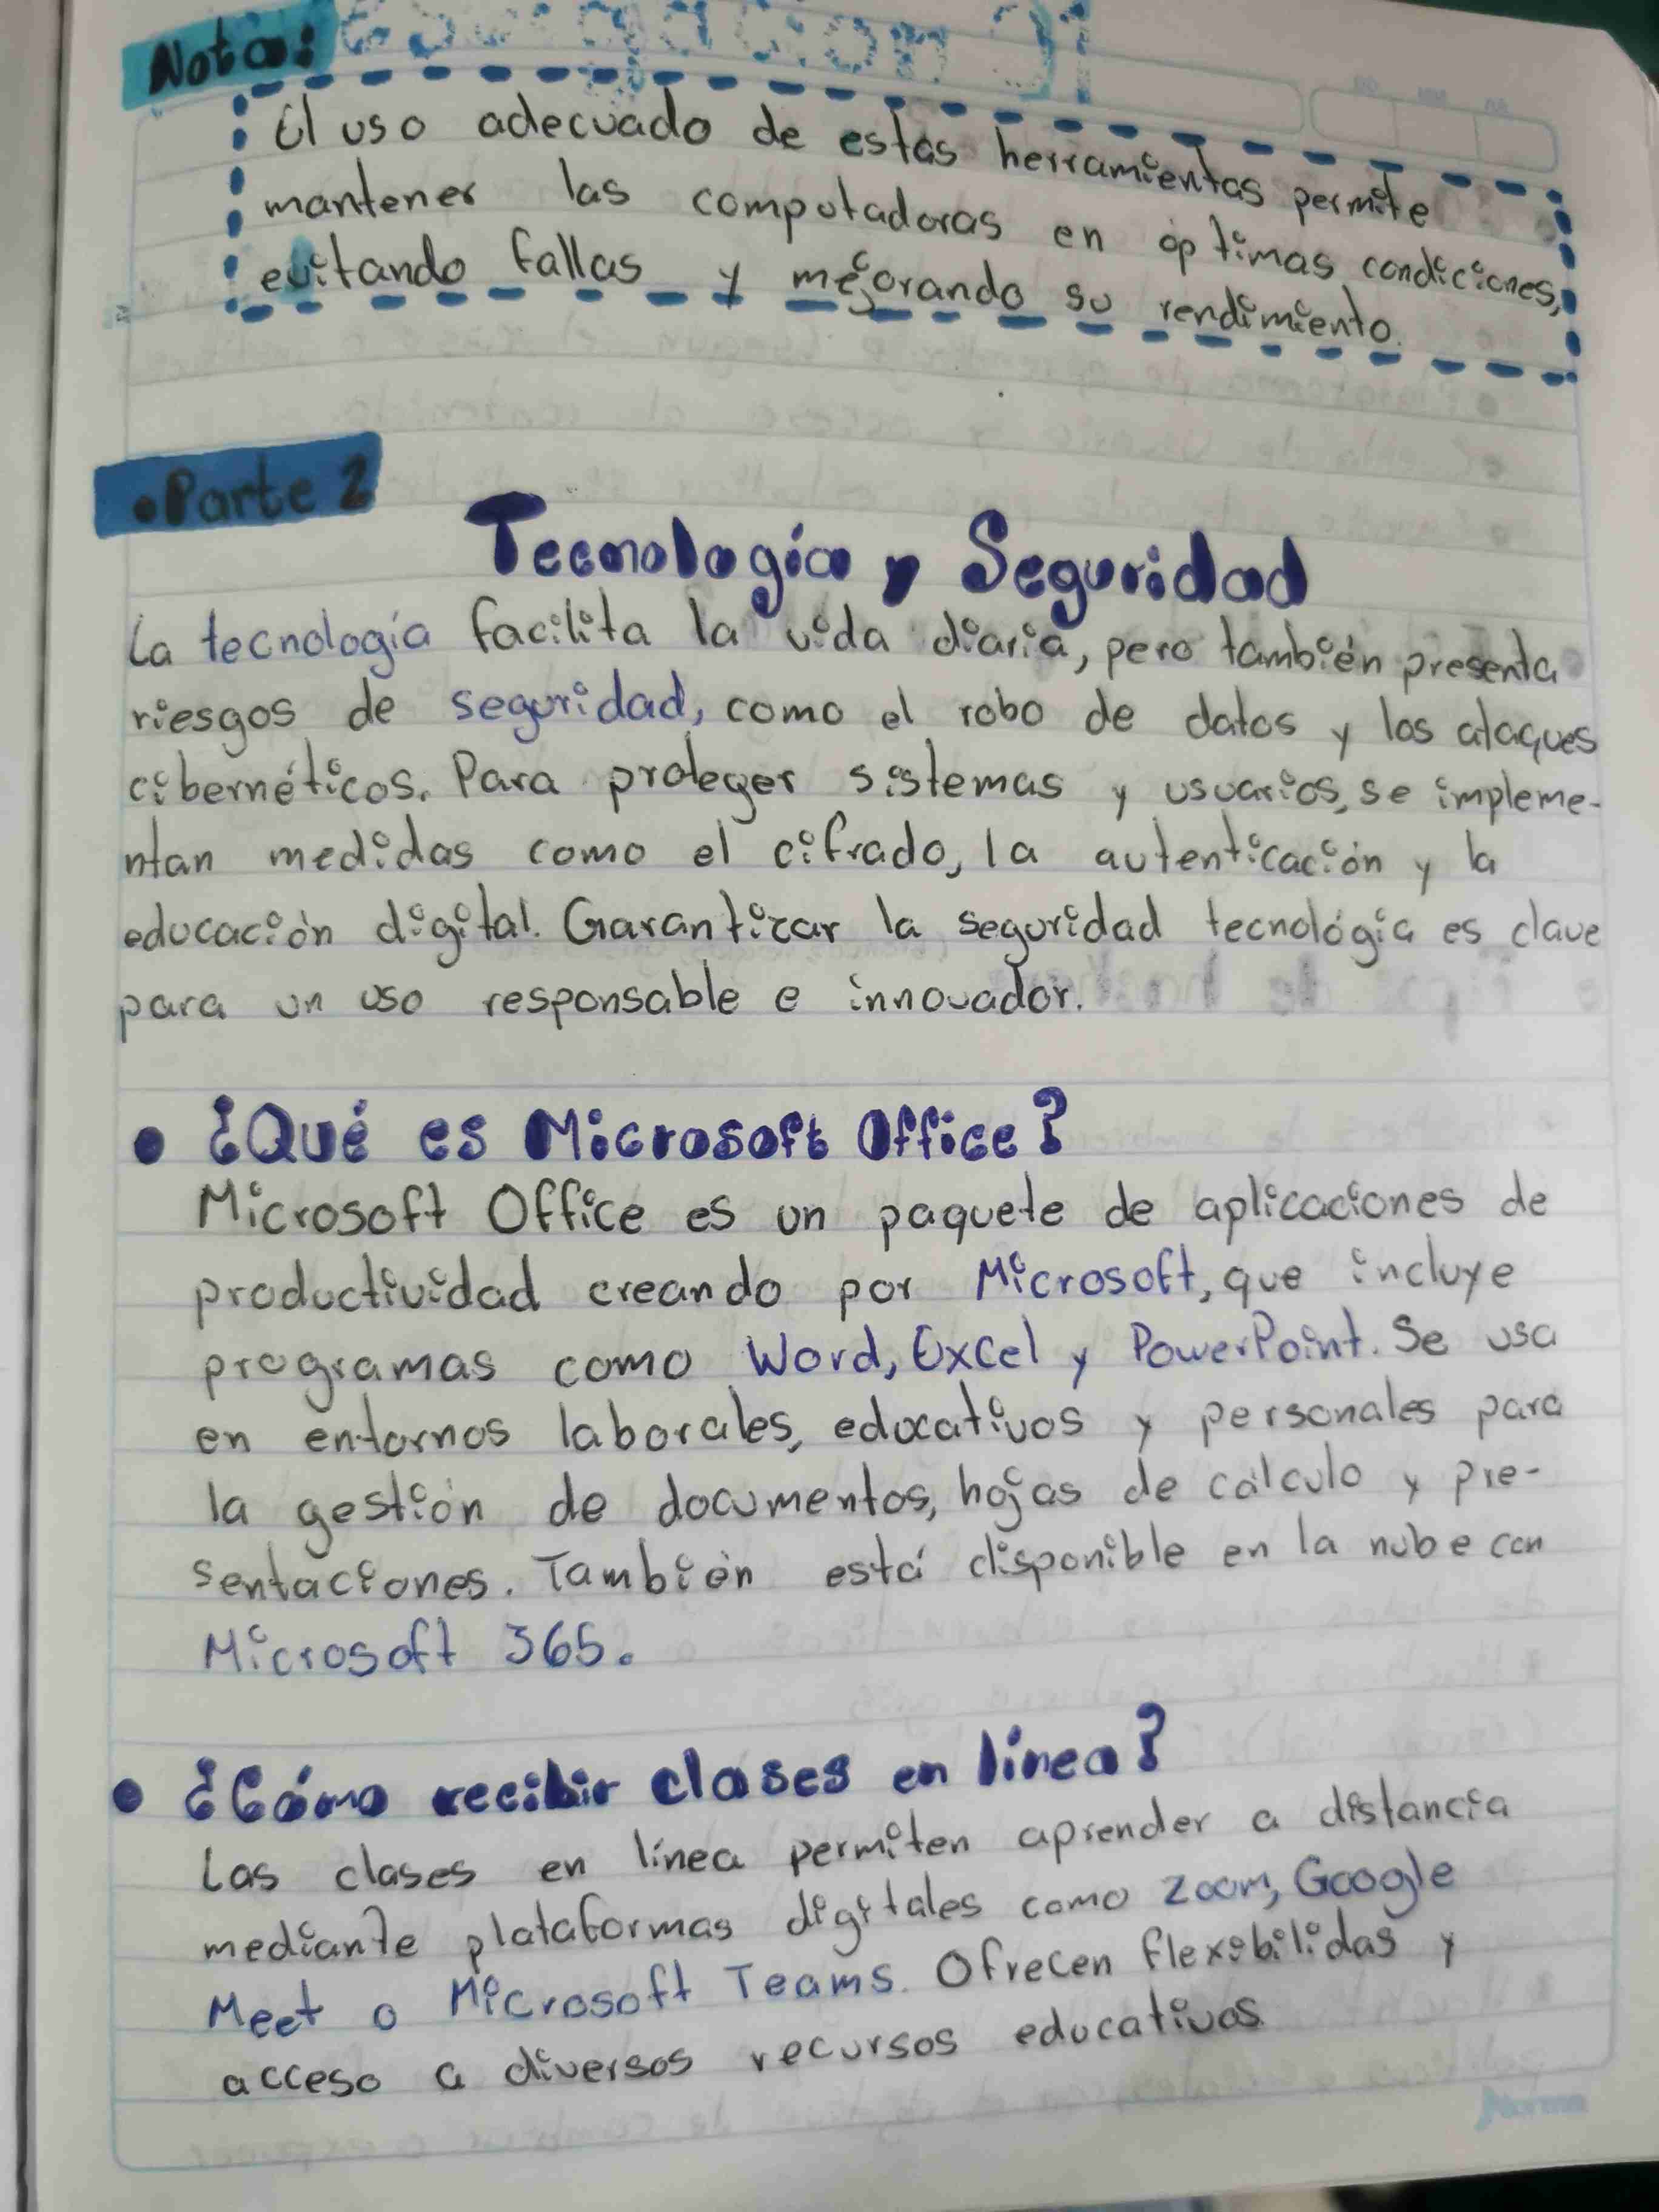 Nota:
El uso adecuado de estas herramientas permite
mantener las computadoras en óptimas condiciones,
evitando fallas y mejorando su rendimiento.
• Parte 2
Tecnología y Seguridad
La tecnología facilita la vida diaria, pero también presenta
riesgos de seguridad, como el robo de datos y los ataques
cibernéticos. Para proteger sistemas y usuarios, se impleme-
ntan medidas como el cifrado, la autenticación y la
educación digital. Garantizar la seguridad tecnológia es clave
para un uso responsable e innovador.
• ¿Qué es Microsoft Office?
Microsoft Office es un paquete de aplicaciones de
productividad creando por Microsoft, que incluye
programas como Word, Excel y PowerPoint. Se usa
en entornos laborales, educativos y personales para
la gestión de documentos, hojas de cálculo y pre-
sentaciones. También está disponible en la nube con
Microsoft 365.
• ¿Cómo recibir clases en línea?
Las clases en línea permiten aprender a distancia
mediante plataformas digitales como Zoom, Google
Meet o Microsoft Teams. Ofrecen flexibilidas y
acceso a diversos recursos educativos
Norma